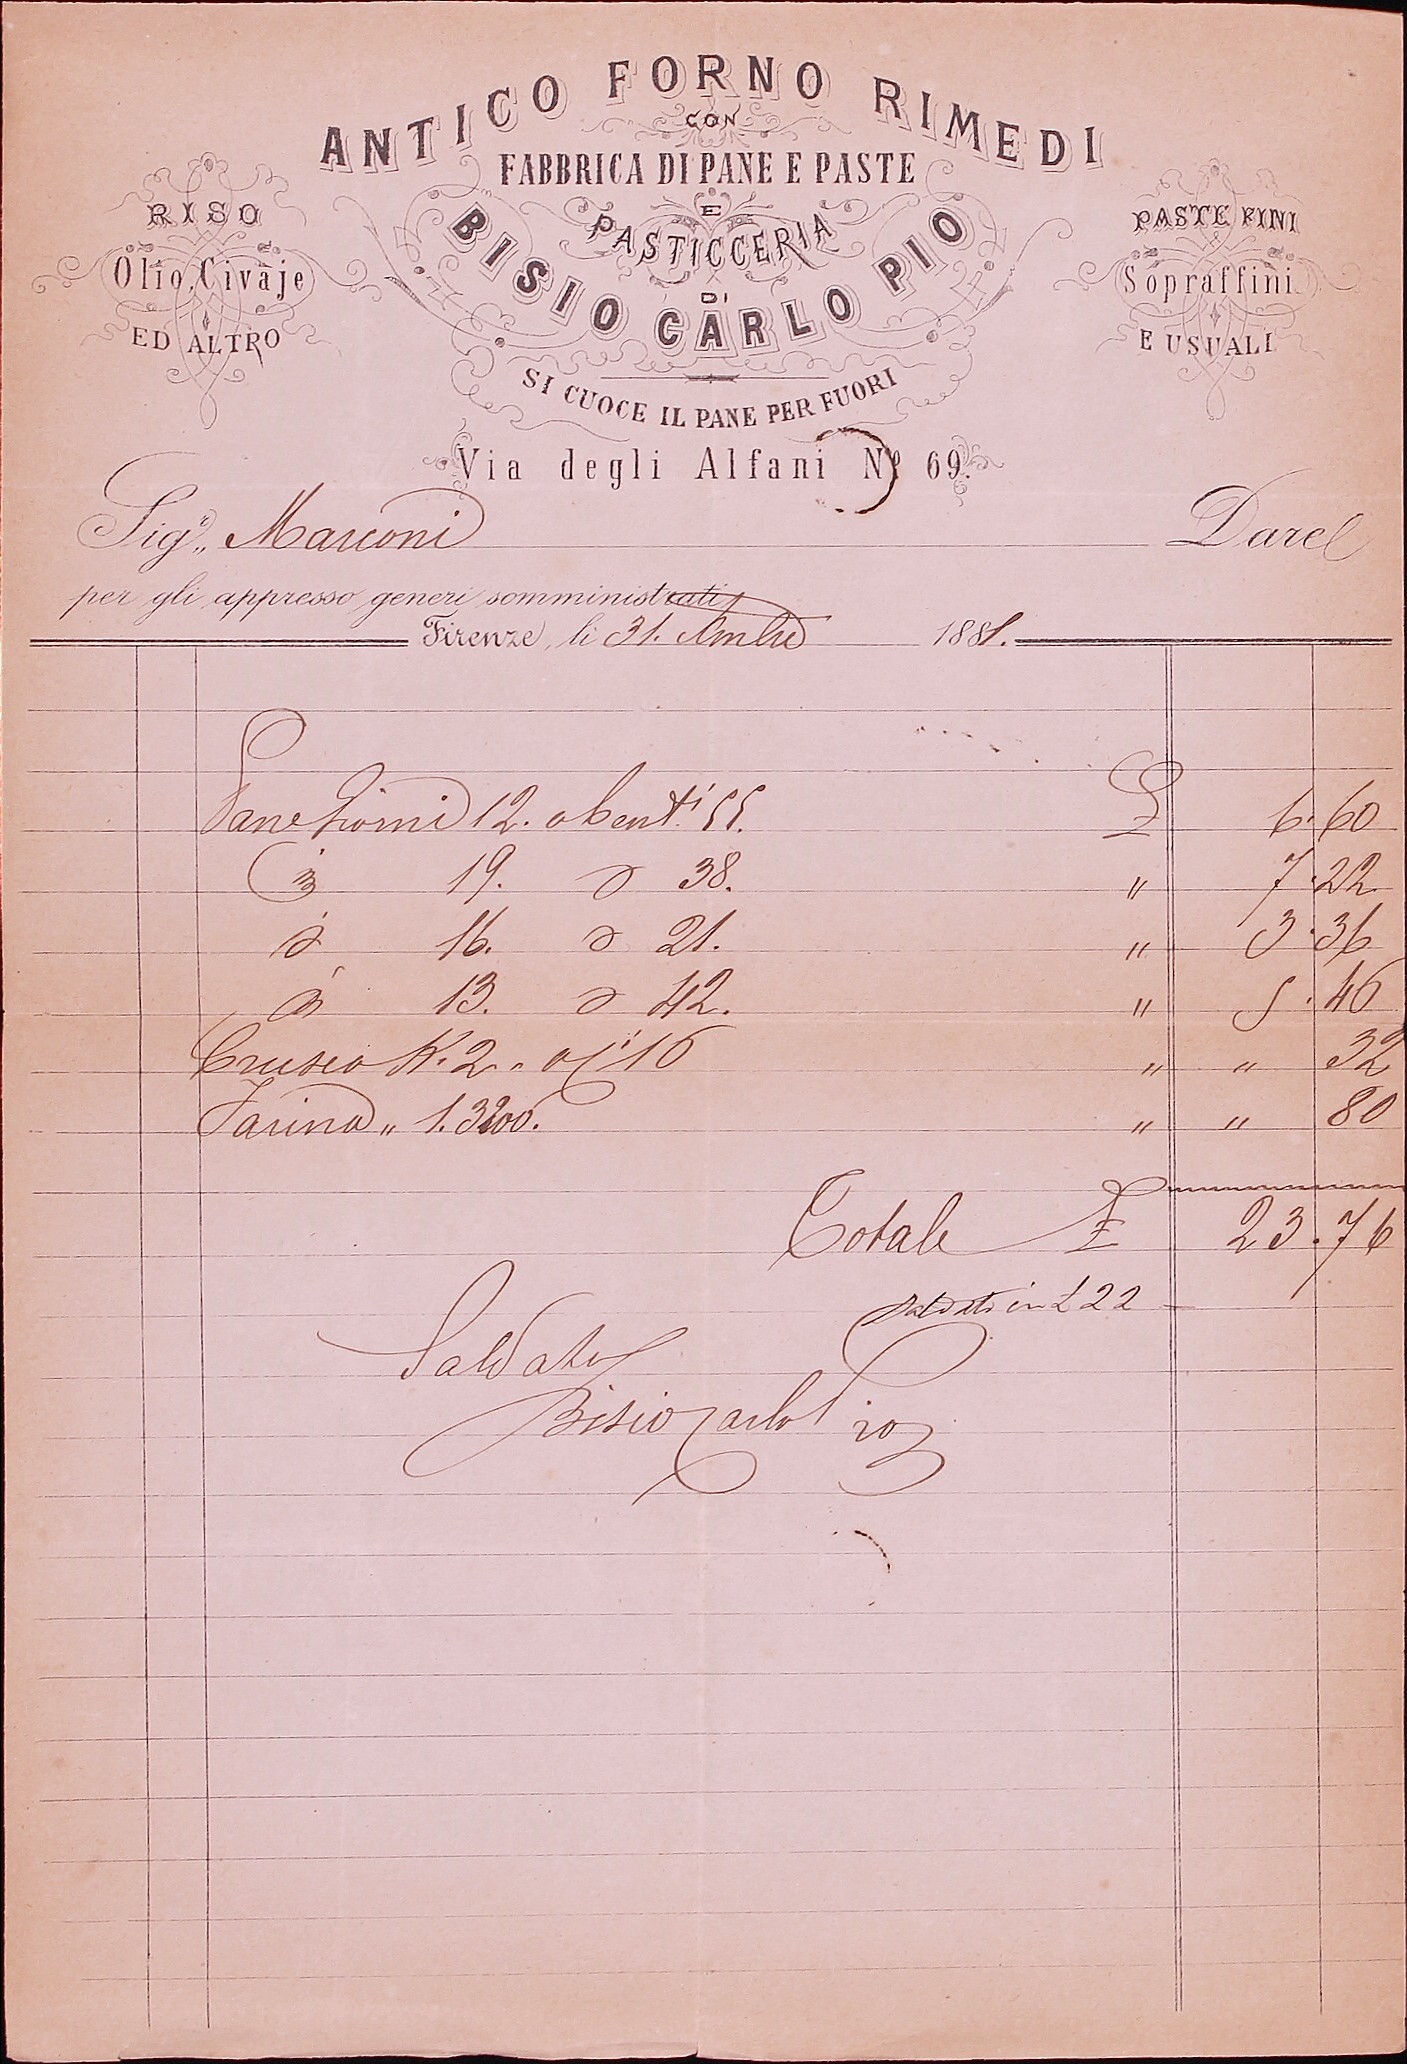 ANTICO FORNO RIMEDI
CON
FABBRICA DI PANE E PASTE
E
PASTICCERIA
DI
BISIO CARLO PIO
SI CUOCE IL PANE PER FUORI
Via degli Alfani Nº 69.
RISO
Olio, Civaje
ED ALTRO
PASTE FINI
Sopraffini
E USUALI
Sigr. Marconi Dare
per gli appresso generi somministrati
Firenze, li 31. 1881.
Pane Giorni 12. a Cent.i 55. £ 6.60
19. 38. " 7.22
16. 21. " 3.36
13. 42. " 5.46
Crusca K. 2 " 16 " " 32
Farina " " " 80
Totale £ 23.76
Saldato in £ 22 —
Saldato
Bisio Carlo Pio